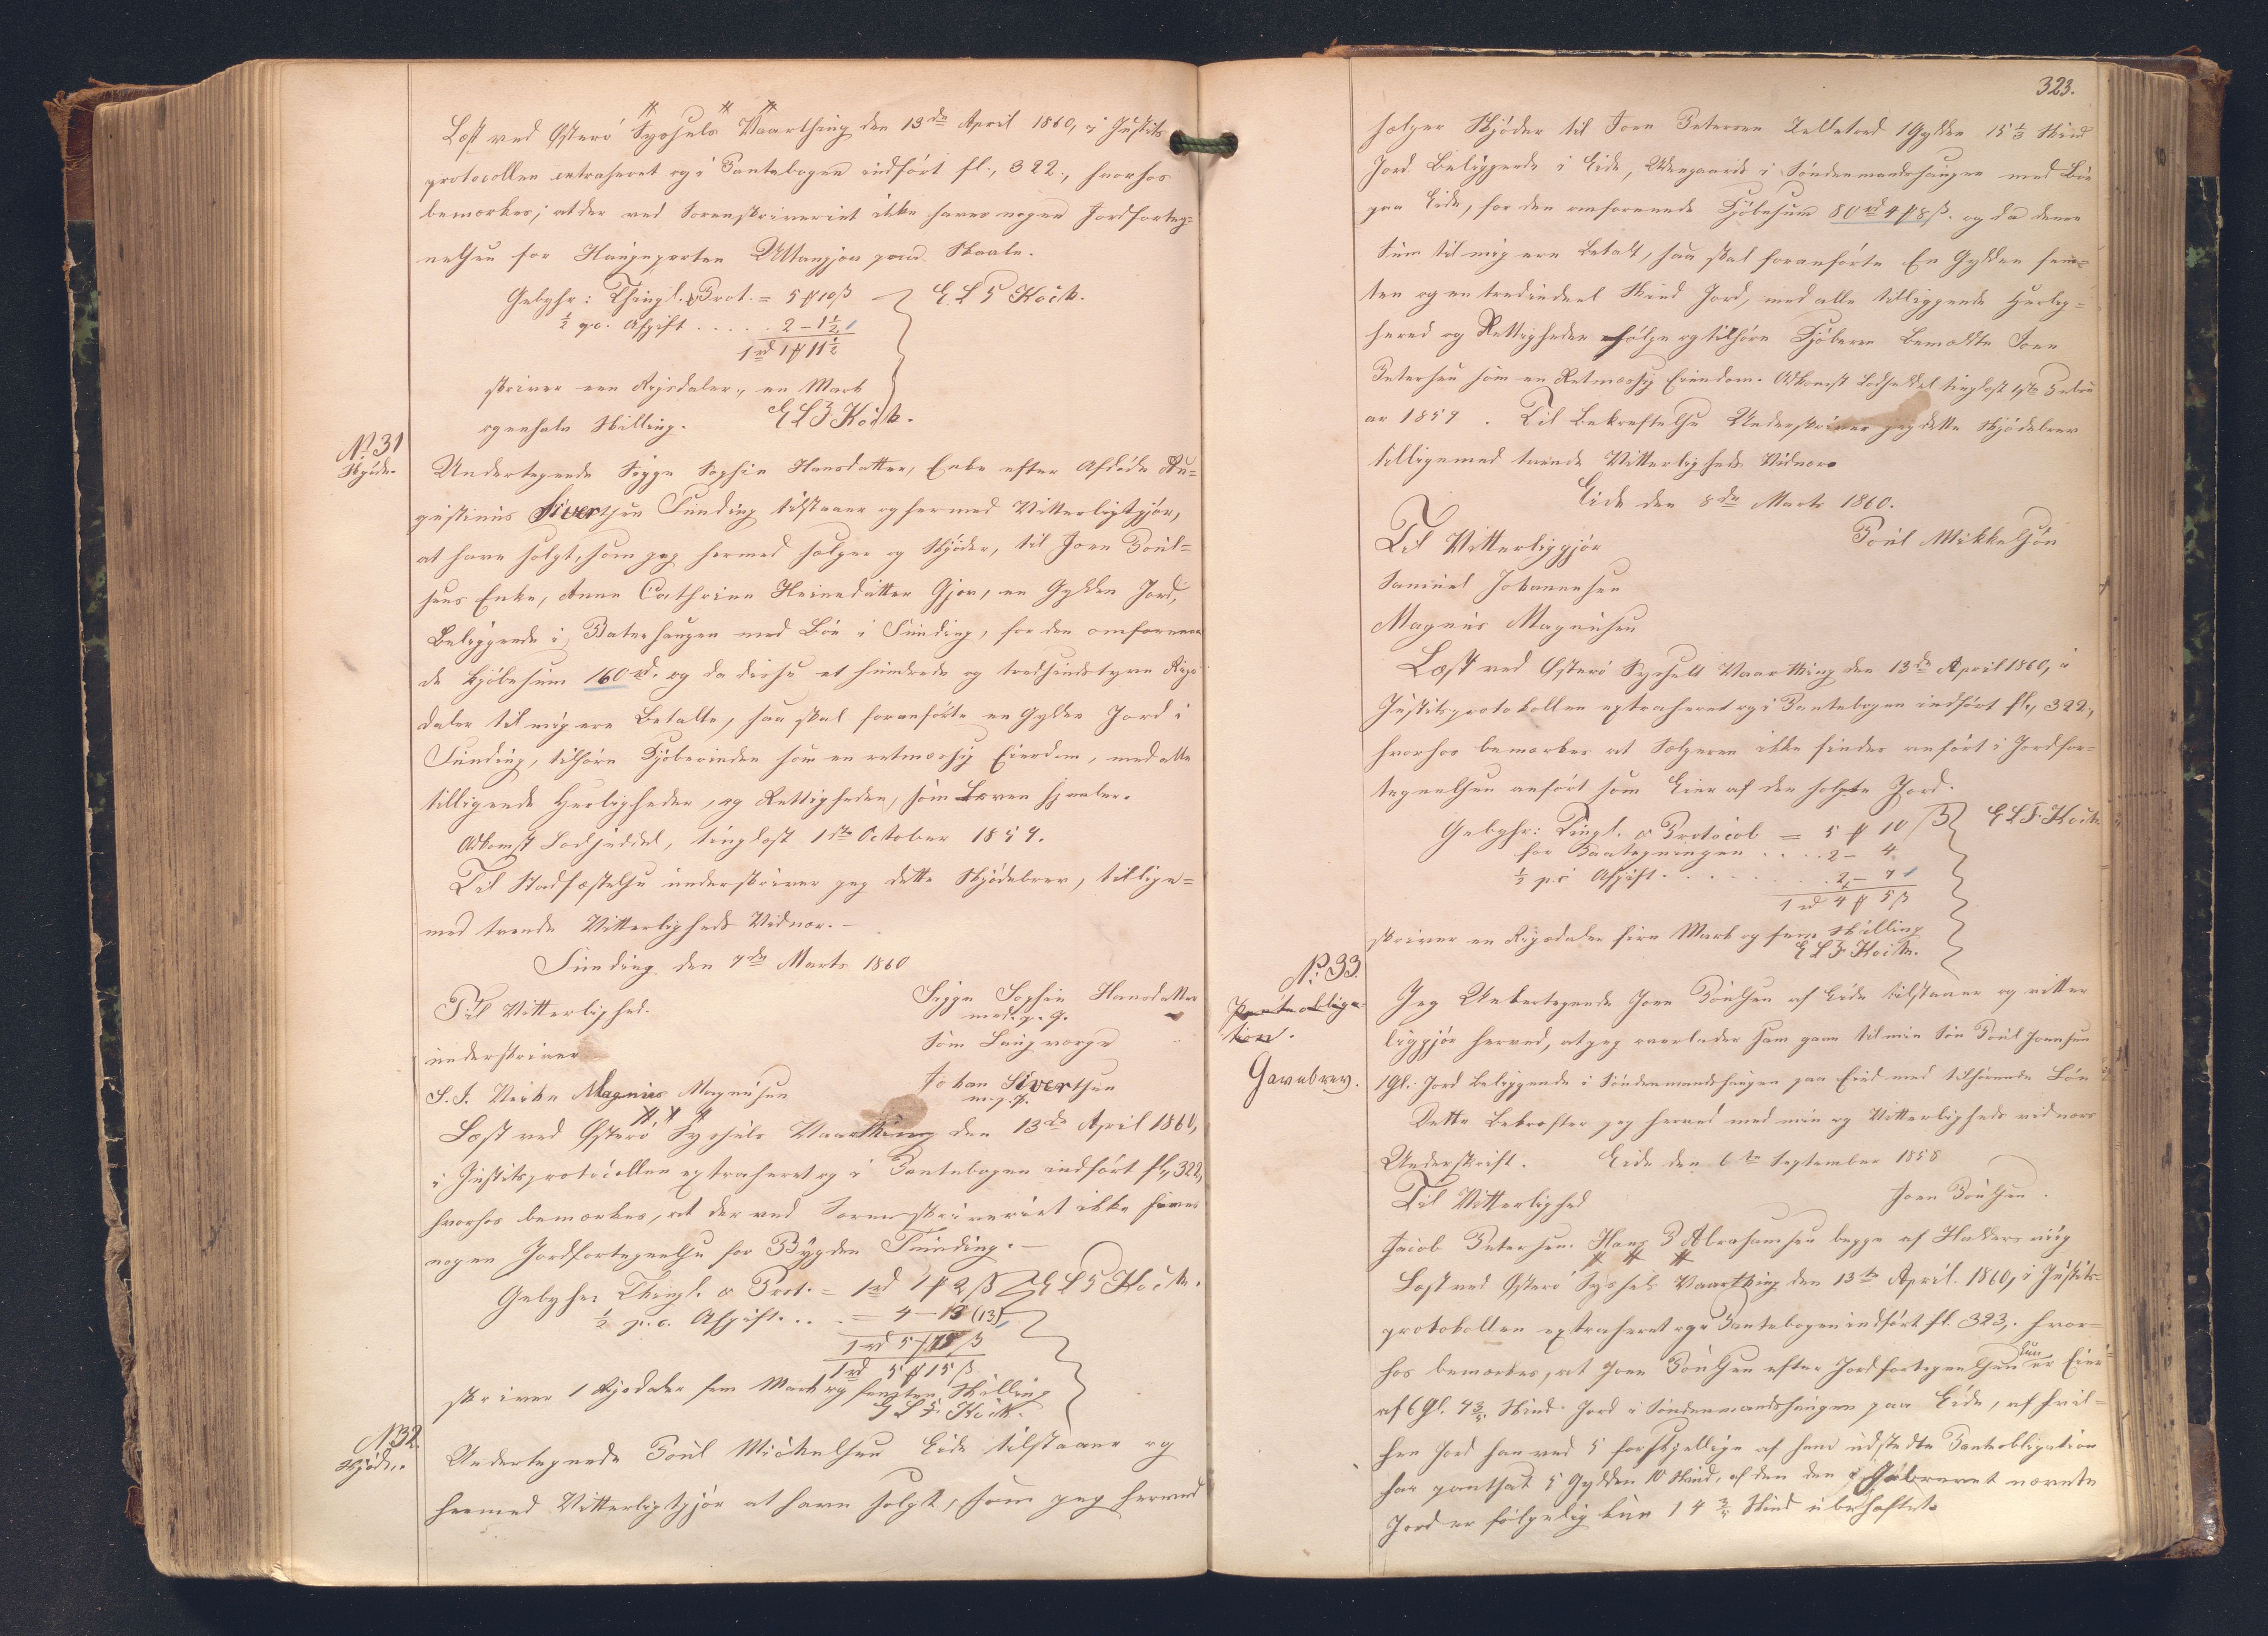 Læst ved Østerø Syssels Vaarthing den 13de April 1860, i Justits
protocollen extraheret og i Pantebogen indført fl., 322., hvorhos
bemærkes, at der ved Sorenskriveriet ikke haves nogen Jordforteg=
nelse for Haugeparten Uttangjov paa Skaale.
Gebyhr: Thingl. & Prot. = 5 ℔ 10 ß E L F Koch.
½ p.c. Afgift ..... 2 - 1½
1 rd 1 ℔ 11½
skriver een Rigsdaler, en Mark
og en halv Skilling. E L F Koch.
No. 31
Skjøde.
Undertegnede Sigge Sophie Hansdatter, Enke efter Afdøde Au=
gustinus Siverthsen Funding tilstaaer og hermed Vitterligtgjør,
at have solgt, som jeg hermed sælger og skjøder, til Joen Poul=
sens Enke, Anne Cathrine Heinedatter Gjov, en Gylden Jord,
Beliggende i Paterhaugen med Bøe i Funding, for den omforenen
de Kjøbesum 160 rd. og da disse et hundrede og tredsindstyve Rigs
daler til mig ere Betalte, saa skal foranførte en Gylden Jord i
Funding, tilhøre Kjøberinden som en retmæssig Eiendom, med alle
tilligende Herligheder, og Rettigheder, som Loven hjemler.
Adkomst Lodseddel, tinglæst 1ste October 1859.
Til Stadfæstelse underskriver jeg dette Skjødebrev, tillige=
med tvende Vitterligheds Vidner.-
Funding den 7de Marts 1860
Til Vitterlighed. Sigge Sophie Hansdatter
underskriver m. p. g.
Som Laugværge
S. J. Veihe Magnus Magnusen Johan Siverthsen
m. p. g.
Læst ved Østerø Syssels Vaarthing den 13de April 1860,
i Justitsprotocollen extraheret og i Pantebogen indført fl. 322,
hvorhos bemærkes, at der ved Sorenskriveriet ikke haves
nogen Jordfortegnelse for Bygden Funding.-
Gebyher Thingl. & Prot. = 1 rd 1 ℔ 2 ß E L F Koch.
½ p.c. Afgift... = 4 - 13 (13)
1 rd 5 ℔ 15 ß
1 rd 5 ℔ 15 ß
skriver 1 Rigsdaler fem Mark og femten Skilling
E L F. Koch.
N. 32.
Skjøde.
Undertegnede Poul Mickelsen Eide tilstaaer og
hermed Vitterligtgjør at have solgt, som jeg hermed
323.
sælger Skjøder til Joen Petersen 1 Gylden 15 ⅓ Skind
Jord Beliggende i Eide, i Søndenmandshaugen med Bøe
paa Eide, for den omforenede Kjøbesum 80 rd 4 ℔ 8 ß. og da denne
Sum til mig ere Betalt, saa skal foranførte En Gylden fem=
ten og en trediedeel Skind Jord, med alle tilliggende Herlig=
hered og Rettigheder følge og tilhøre Kjøberen Bemældte Joen
Petersen som en Retmæssig Eiendom. Adkomst Lodseddel tinglæst Febru
ar 1859. Til Bekræftelse Underskriver jeg dette Skjødebrev
tilligemed tvende Vitterligheds Vidner.
Eide den 8de Marts 1860.
Til Vitterliggjør Poul Mikkelsen
Samuel Johannesen
Magnus Magnusen
Læst ved Østerø Syssels Vaarthing den 13de April 1860, i
Justitsprotokollen extraheret og i Pantebogen indført fl., 322,
hvorhos bemærkes at Sælgeren ikke findes anført i Jordfor=
tegnelsen anført som Eier af den solgte Jord.
Gebyhr: Tingl. & Protocol = 5 ℔ 10 ß E L F. Koch
for Paategningen .... 2 - 4
½ p.c Afgift ........ 2 - 7
1 rd 4 ℔ 5 ß
skriver en Rigsdaler fire Mark og fem Skilling
E L F Koch.
No. 33.
Panteobliga=
tion.
Gavebrev.
Jeg Undertegnede Joen Poulsen af Eide tilstaaer og vitter
liggjør herved, at jeg overlader ham gaar til min Søn Poul Joensen
1 Gl. Jord Beliggende i Søndenmandshaugen paa Eid med tilhørende Bøe
Dette Bekræfter jeg herved med min og Vitterligheds vidners
Underskrift. Eide den 6te September 1858
Til Vitterlighed Joen Poulsen.
Jacob Petersen. Hans P Abrahamsen begge af Haldersvig
Læst ved Østerø Syssels Vaarthing den 13de April. 1860, i Justits=
protokollen extraheret og i Pantebogen indført fl. 323,. hvor=
hos bemærkes, at Joen Poulsen efter Jordfortegnelsen kun er Eier
af 6 Gl. Skind Jord i Søndenmandshaugen paa Eide, af hvil=
ken Jord han ved 5 forskjellige af ham udstedte Panteobligation
har pantsat 5 Gylden 10 Skind, af den den i Gavbrevet nævnte
Jord er følgelig kun Skind ubehæftet.